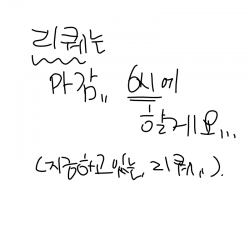 리퀘는
마감,, 6시에
할게요...
(지금하고있는 리퀘,,).